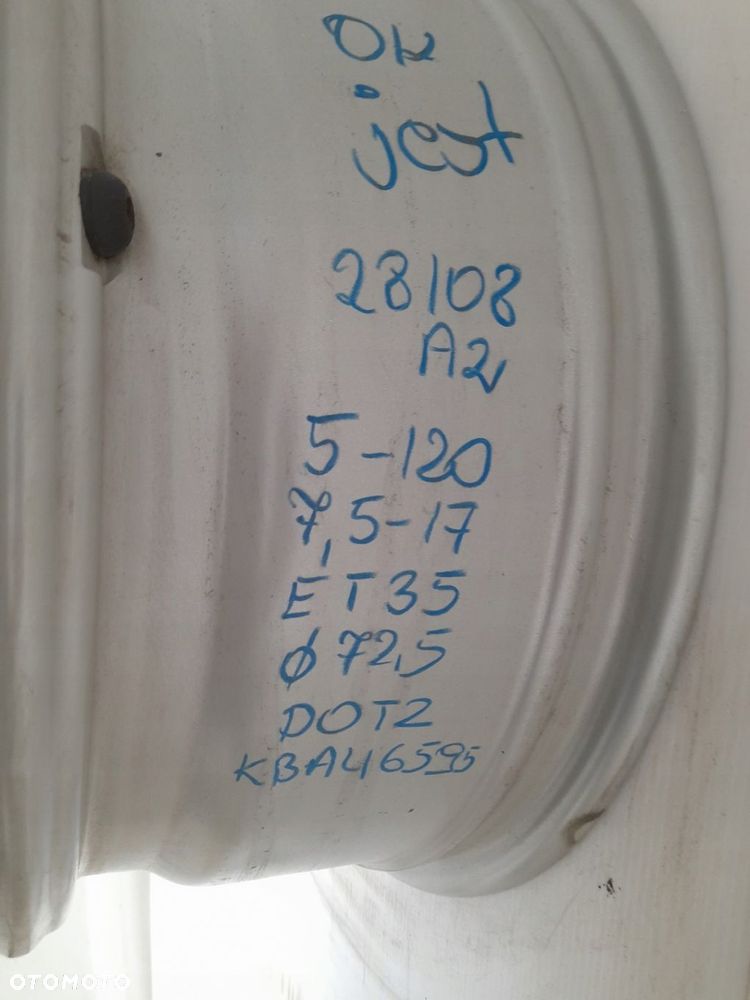 OK
jest
28108
A2
5-120
7,5-17
ET35
ø72,5
DOTZ
KBA46595
OTOMOTO